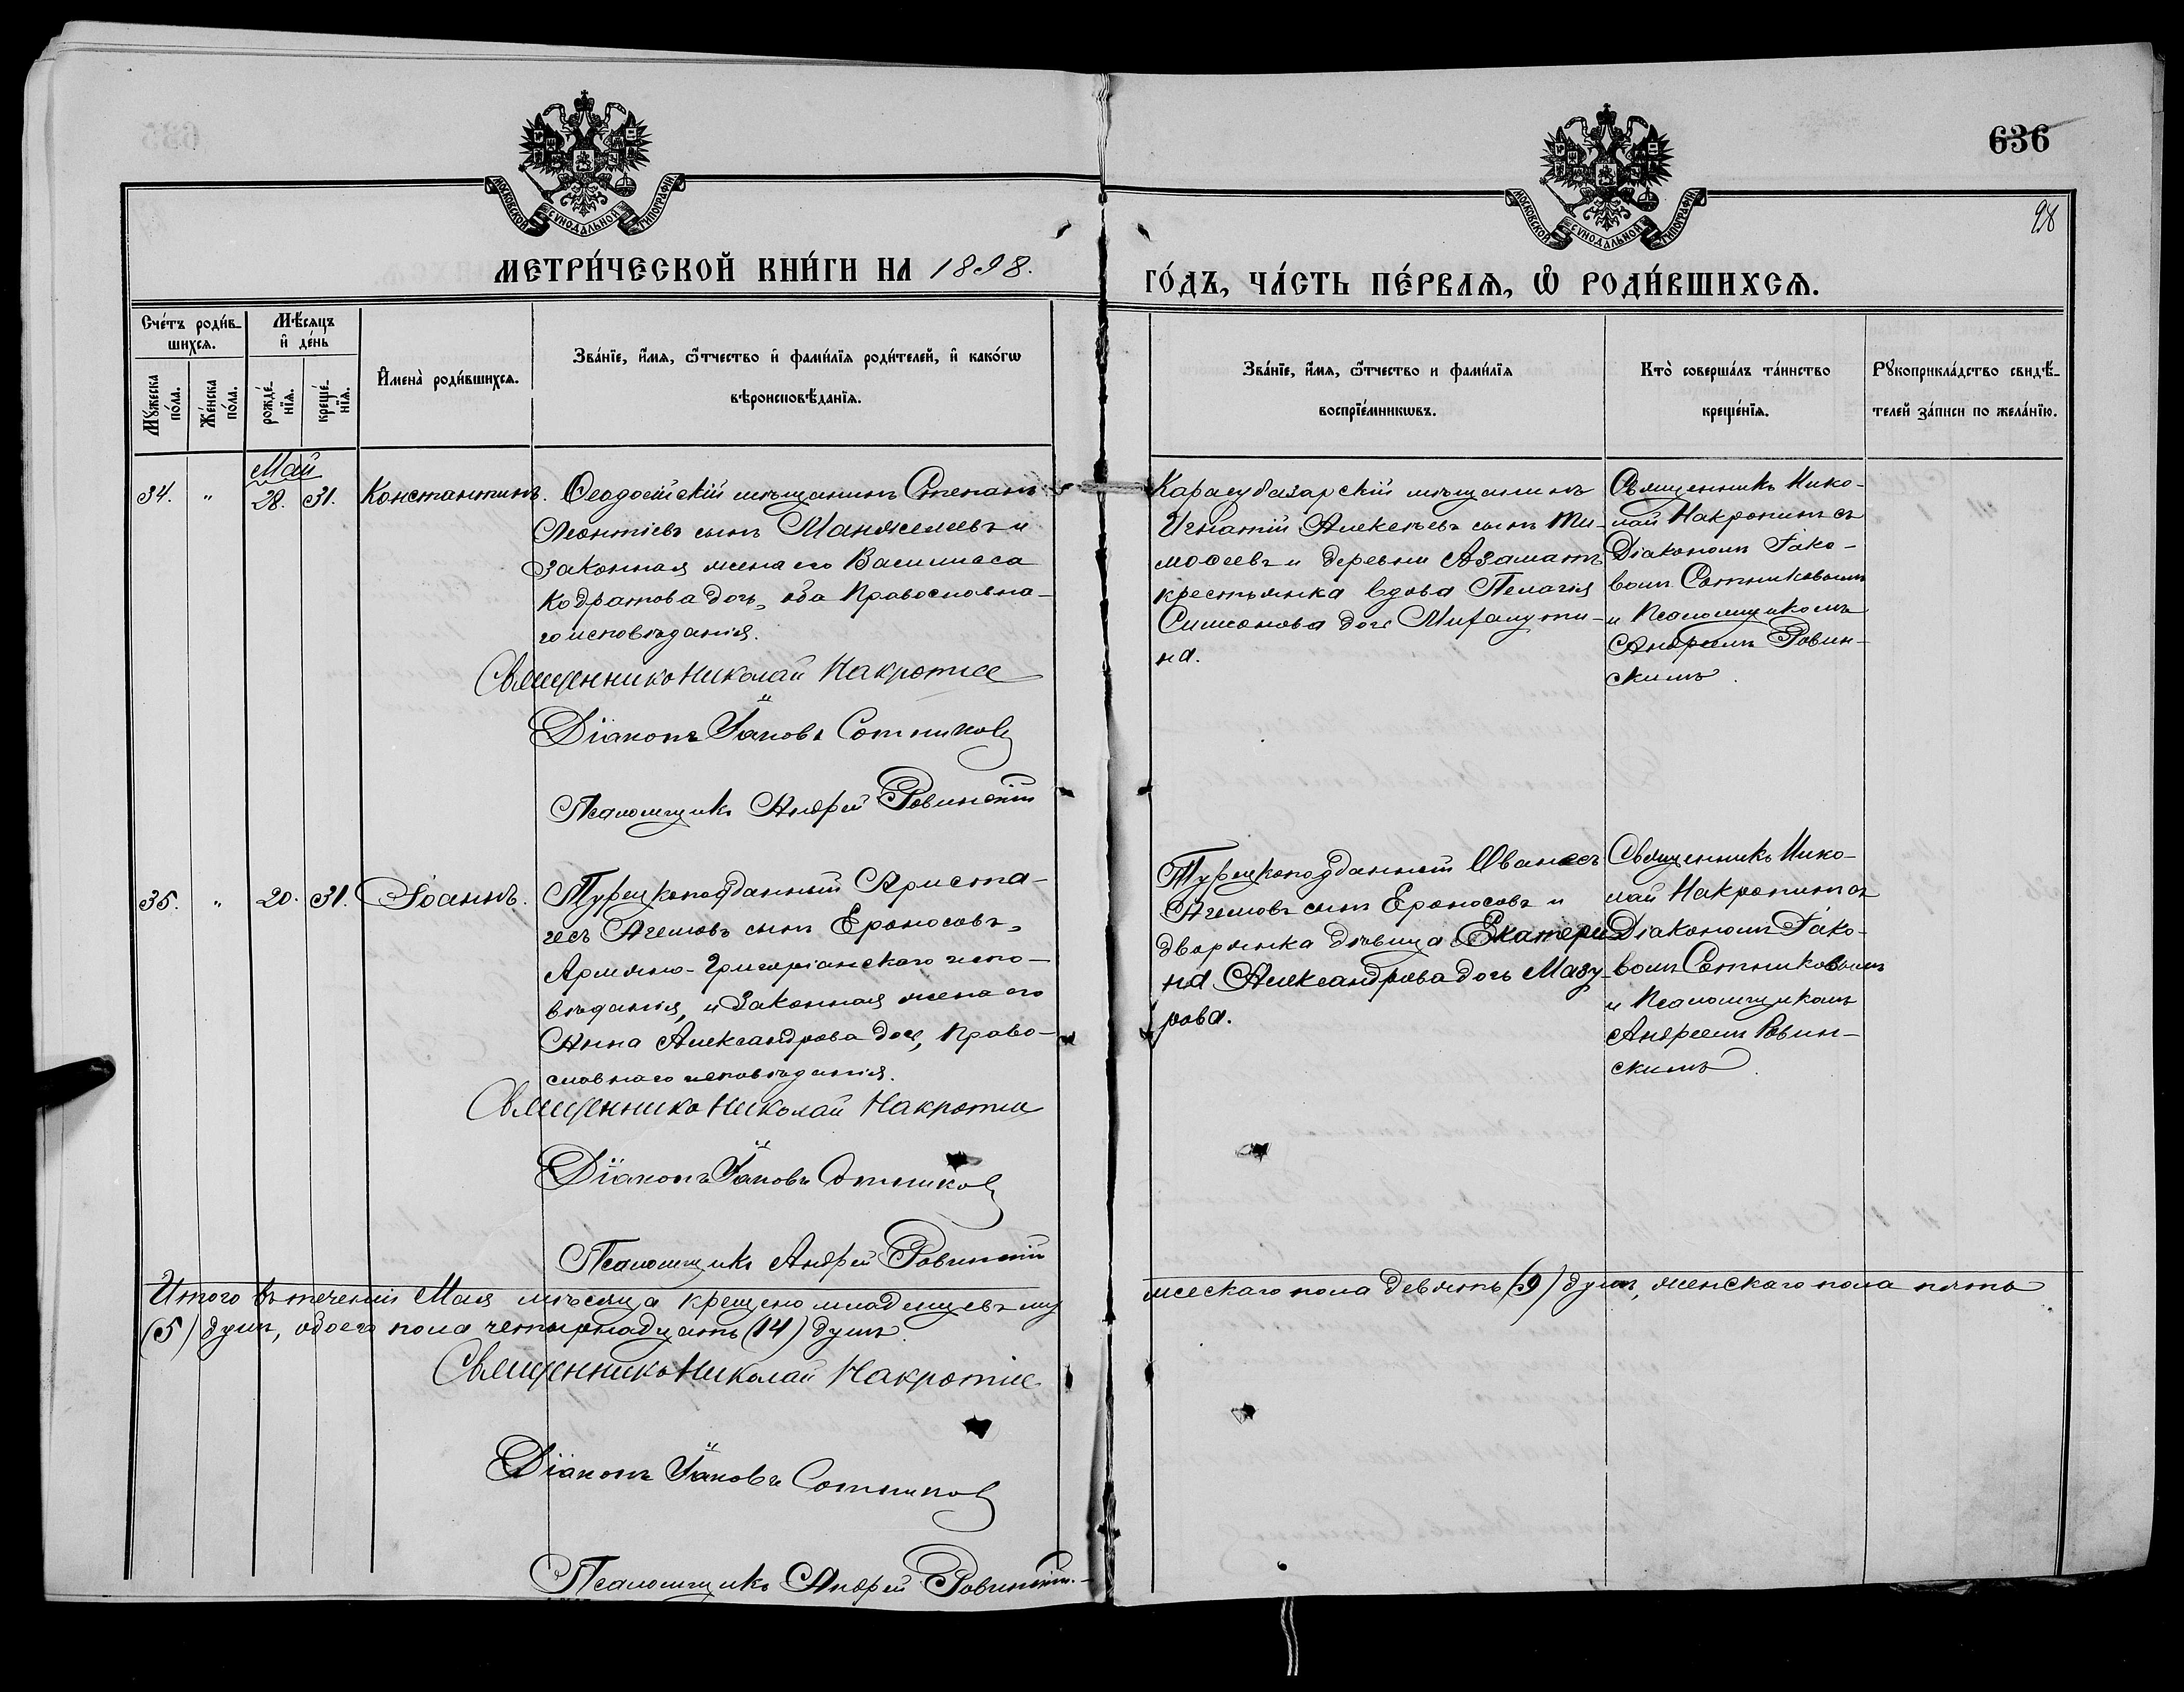 636
98
МОСКОВСКОЙ СѴНОДАЛЬНОЙ ТИПОГРАФІИ
МОСКОВСКОЙ СѴНОДАЛЬНОЙ ТИПОГРАФІИ
МЕТРИ́ЧЕСКОЙ КНИ́ГИ НА 1898.
ГО́ДЪ, ЧА́СТЬ ПЕ́РВАѦ, Ѽ РОДИ́ВШИХСѦ.
Сче́тъ роди́в-
шихсѧ.
Мѣ́сѧцъ
и҆ де́нь
Мꙋ́жеска
по́ла.
Же́нска
по́ла.
рожде́-
нїѧ.
креще́-
нїѧ.
И҆мена̀ роди́вшихсѧ.
Зва́нїе, и҆́мѧ, ѻ҆́тчество и҆ фами́лїѧ роди́телей, и҆ како́гѡ
вѣроисповѣ́данїѧ.
Зва́нїе, и҆́мѧ, ѻ҆́тчество и фами́лїѧ
воспрїе́мникѡвъ.
Кто̀ соверша́лъ та́инство
креще́нїѧ.
Рꙋкоприкла́дство свидѣ́-
телей за́писи по жела́нїю.
Май
34. " 28. 31. Константинъ.
Ѳеодосійскій мѣщанинъ Степанъ
Леонтіевъ сынъ Манжелеевъ и
законная жена его Василиса
Кодратова дочь, оба Православна-
го исповѣданія.
Священникъ Николай Накропин
Діаконъ Іаковъ Сотников
Псаломщикъ Андрей Ровинскій
Карасубазарскій мѣщанинъ
Игнатій Алексѣевъ сынъ Ти-
моѳеевъ и деревни Азаматъ
крестьянка вдова Пелагія
Симеонова дочь
на.
Священникъ Нико-
лай Накропинъ съ
Діакономъ Іако-
вомъ Сотниковымъ
и Псаломщикомъ
Андреемъ Ровин-
скимъ.
35. " 20. 31. Іоаннъ.
Турецкоподданный Ариста-
гесъ Агемовъ сынъ Ероносовъ,
Армяно-Григоріанскаго испо-
вѣданія, и законная жена его
Анна Александрова дочь, Право-
славнаго исповѣданія.
Священникъ Николай Накропин
Діаконъ Іаковъ Сотников
Псаломщикъ Андрей Ровинскій
Турецкоподданный Ованесъ
Агемовъ сынъ Ероносовъ и
дворянка дѣвица Екатери
на Александрова дочь Мазу-
рова.
Священникъ Нико-
лай Накропинъ съ
Діакономъ Іако-
вомъ Сотниковымъ
и Псаломщикомъ
Андреемъ Ровин-
скимъ.
Итого въ теченіи Мая мѣсяца крещено младенцевъ му
жескаго пола девять (9) душъ, женскаго пола пять
(5) душъ, обоего пола четырнадцать (14) душъ.
Священникъ Николай Накропин
Діаконъ Іаковъ Сотников
Псаломщикъ Андрей Ровинскій.